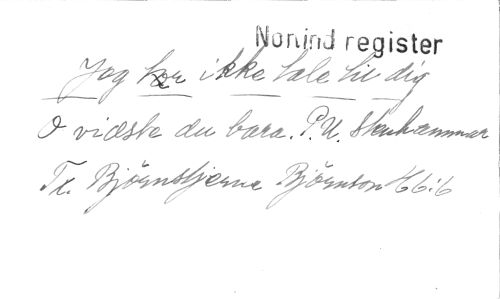 Nonind register
Jag kan ikke tale til dig
O vidste du bara. P. U. Stenhammar
Tx. Björnstjerne Björnson 66:6